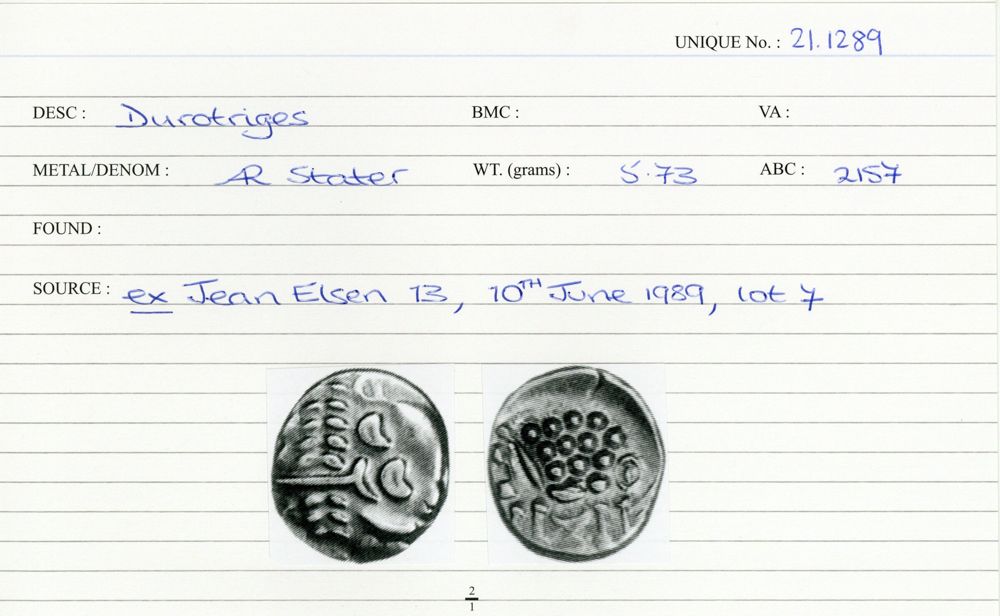 UNIQUE No. : 21.1289
DESC : Durotriges BMC : VA :
METAL/DENOM : AR Stater WT. (grams) : 5.73 ABC : 2157
FOUND :
SOURCE : ex Jean Elsen 13, 10TH June 1989, lot 7
2
1